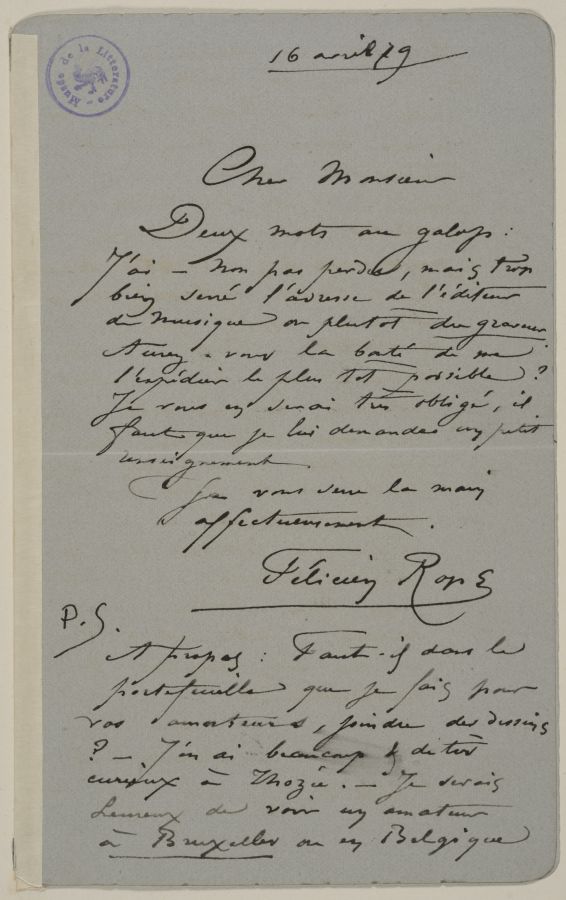 Musée de la Littérature
16 avril 79
Cher Monsieur
Deux mots au galop :
J'ai – non pas perdu, mais trop
bien serré l'adresse de l'éditeur
de musique ou plutot du graveur
Aurez-vous la bonté de me
l'expédier le plus tot possible ?
Je vous en serai très obligé, il
faut que je lui demande un petit
renseignement.
Je vous serre la main
affectueusement.
Félicien Rops
P.S.
A propos : Faut-il dans le
portefeuille que je fais pour
vos amateurs, joindre des dessins
? – J'en ai beaucoup & de très
curieux à Thozée. – Je serais
heureux de voir un amateur
à Bruxelles ou en Belgique